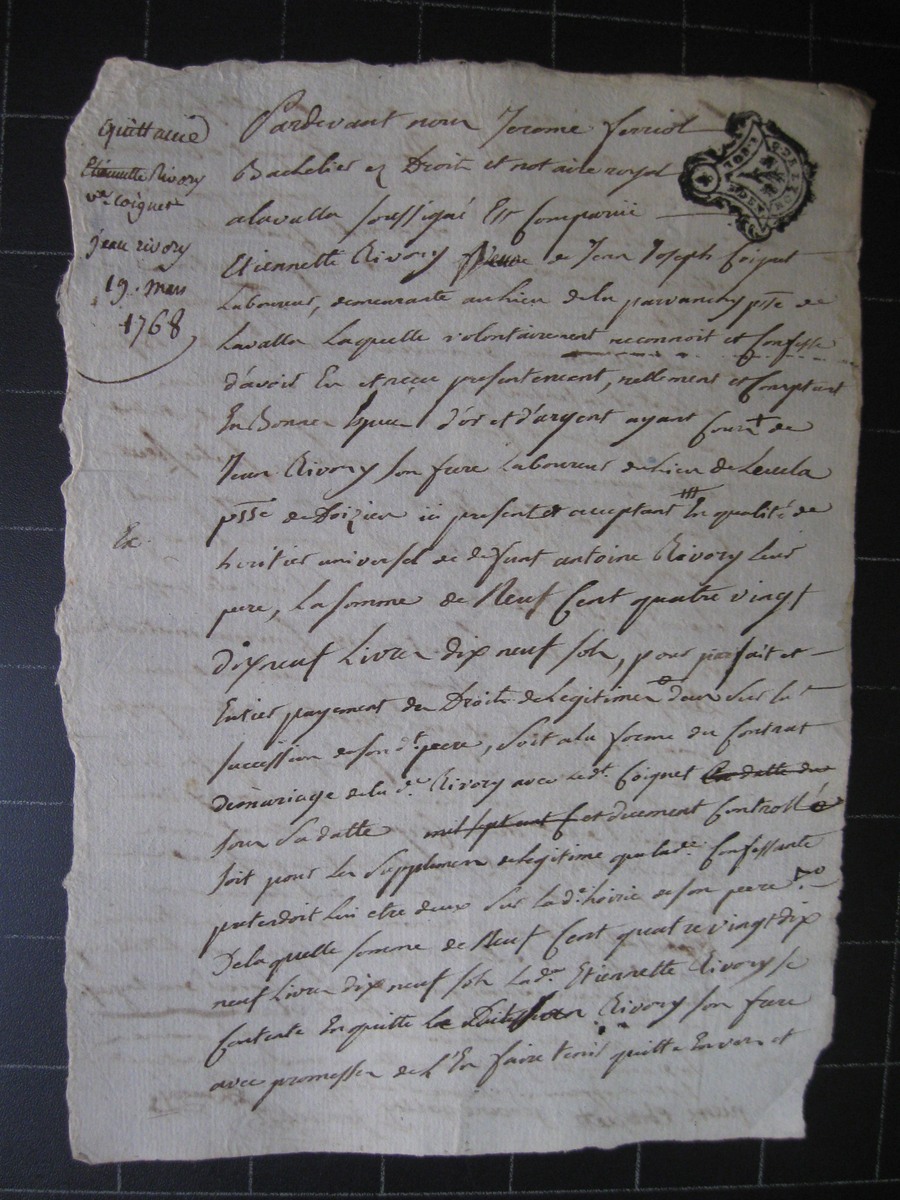 quittance
Etiennette Rivory
ve Coignet
jean rivory
19. mars
1768
Pardevant nous Jerome ferriol
Bachelier ez Droits et notaire royal
alavalla soussigné Est Comparüe
Etiennette Rivory veuve de Jean Joseph Coignet
Laboureur, demeurante au lieu de la parvanchy psse de
Lavalla Laquelle volontairement reconnoit et Confesse
d'avoir Eu et reçu presentement, reellement et Comptant
En Bonnes Especes d'or et d'argent ayant Cours de
Jean Rivory son frere Laboureur du lieu de
psse de Doizieu ici present et acceptant En qualité de
Ex.
heritier universel de defunt antoine Rivory leur
pere, La somme de Neuf Cent quatre vingt
dix neuf Livres dix neuf sols, pour parfait et
Entier payement des Droits de Legitime deus sur la
succession de son dt pere, soit a la forme du Contrat
de mariage de la de Rivory avec le dt Coignet
sous sa datte et duement Controllé
soit pour Les supplemens de legitime que lade Confessante
pretendoit lui etre deus sur la de hoirie de son pere
De laquelle somme de Neuf Cent quatre vingt dix
neuf Livres dix neuf sols Lade Etiennette Rivory se
Contente En quitte Rivory son frere
avec promesse de l'En faire tenir quitte Envers et